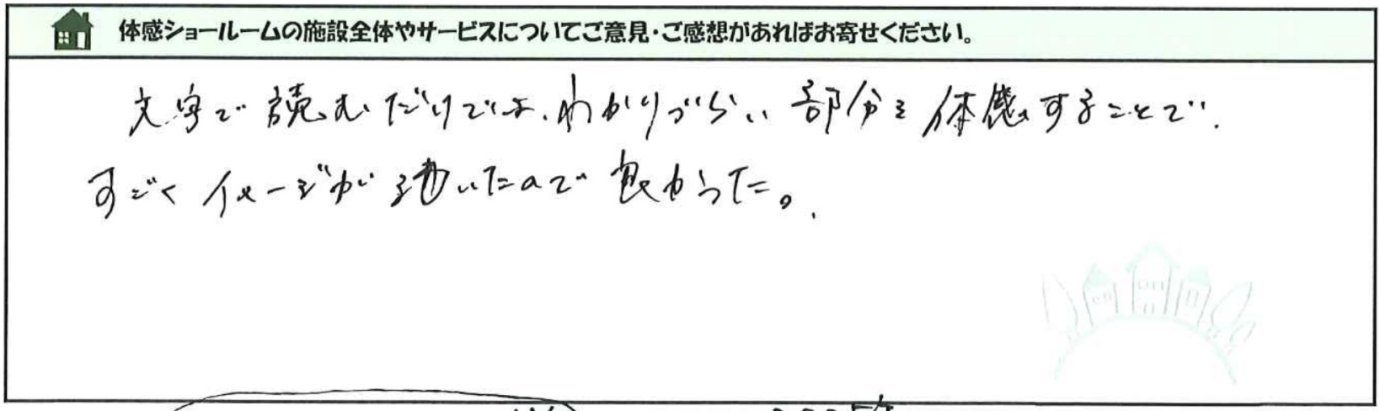 体感ショールームの施設全体やサービスについてご意見・ご感想があればお寄せください。
文字で読むだけでは、わかりづらい部分を体感することで
すごくイメージが湧いたので良かった。